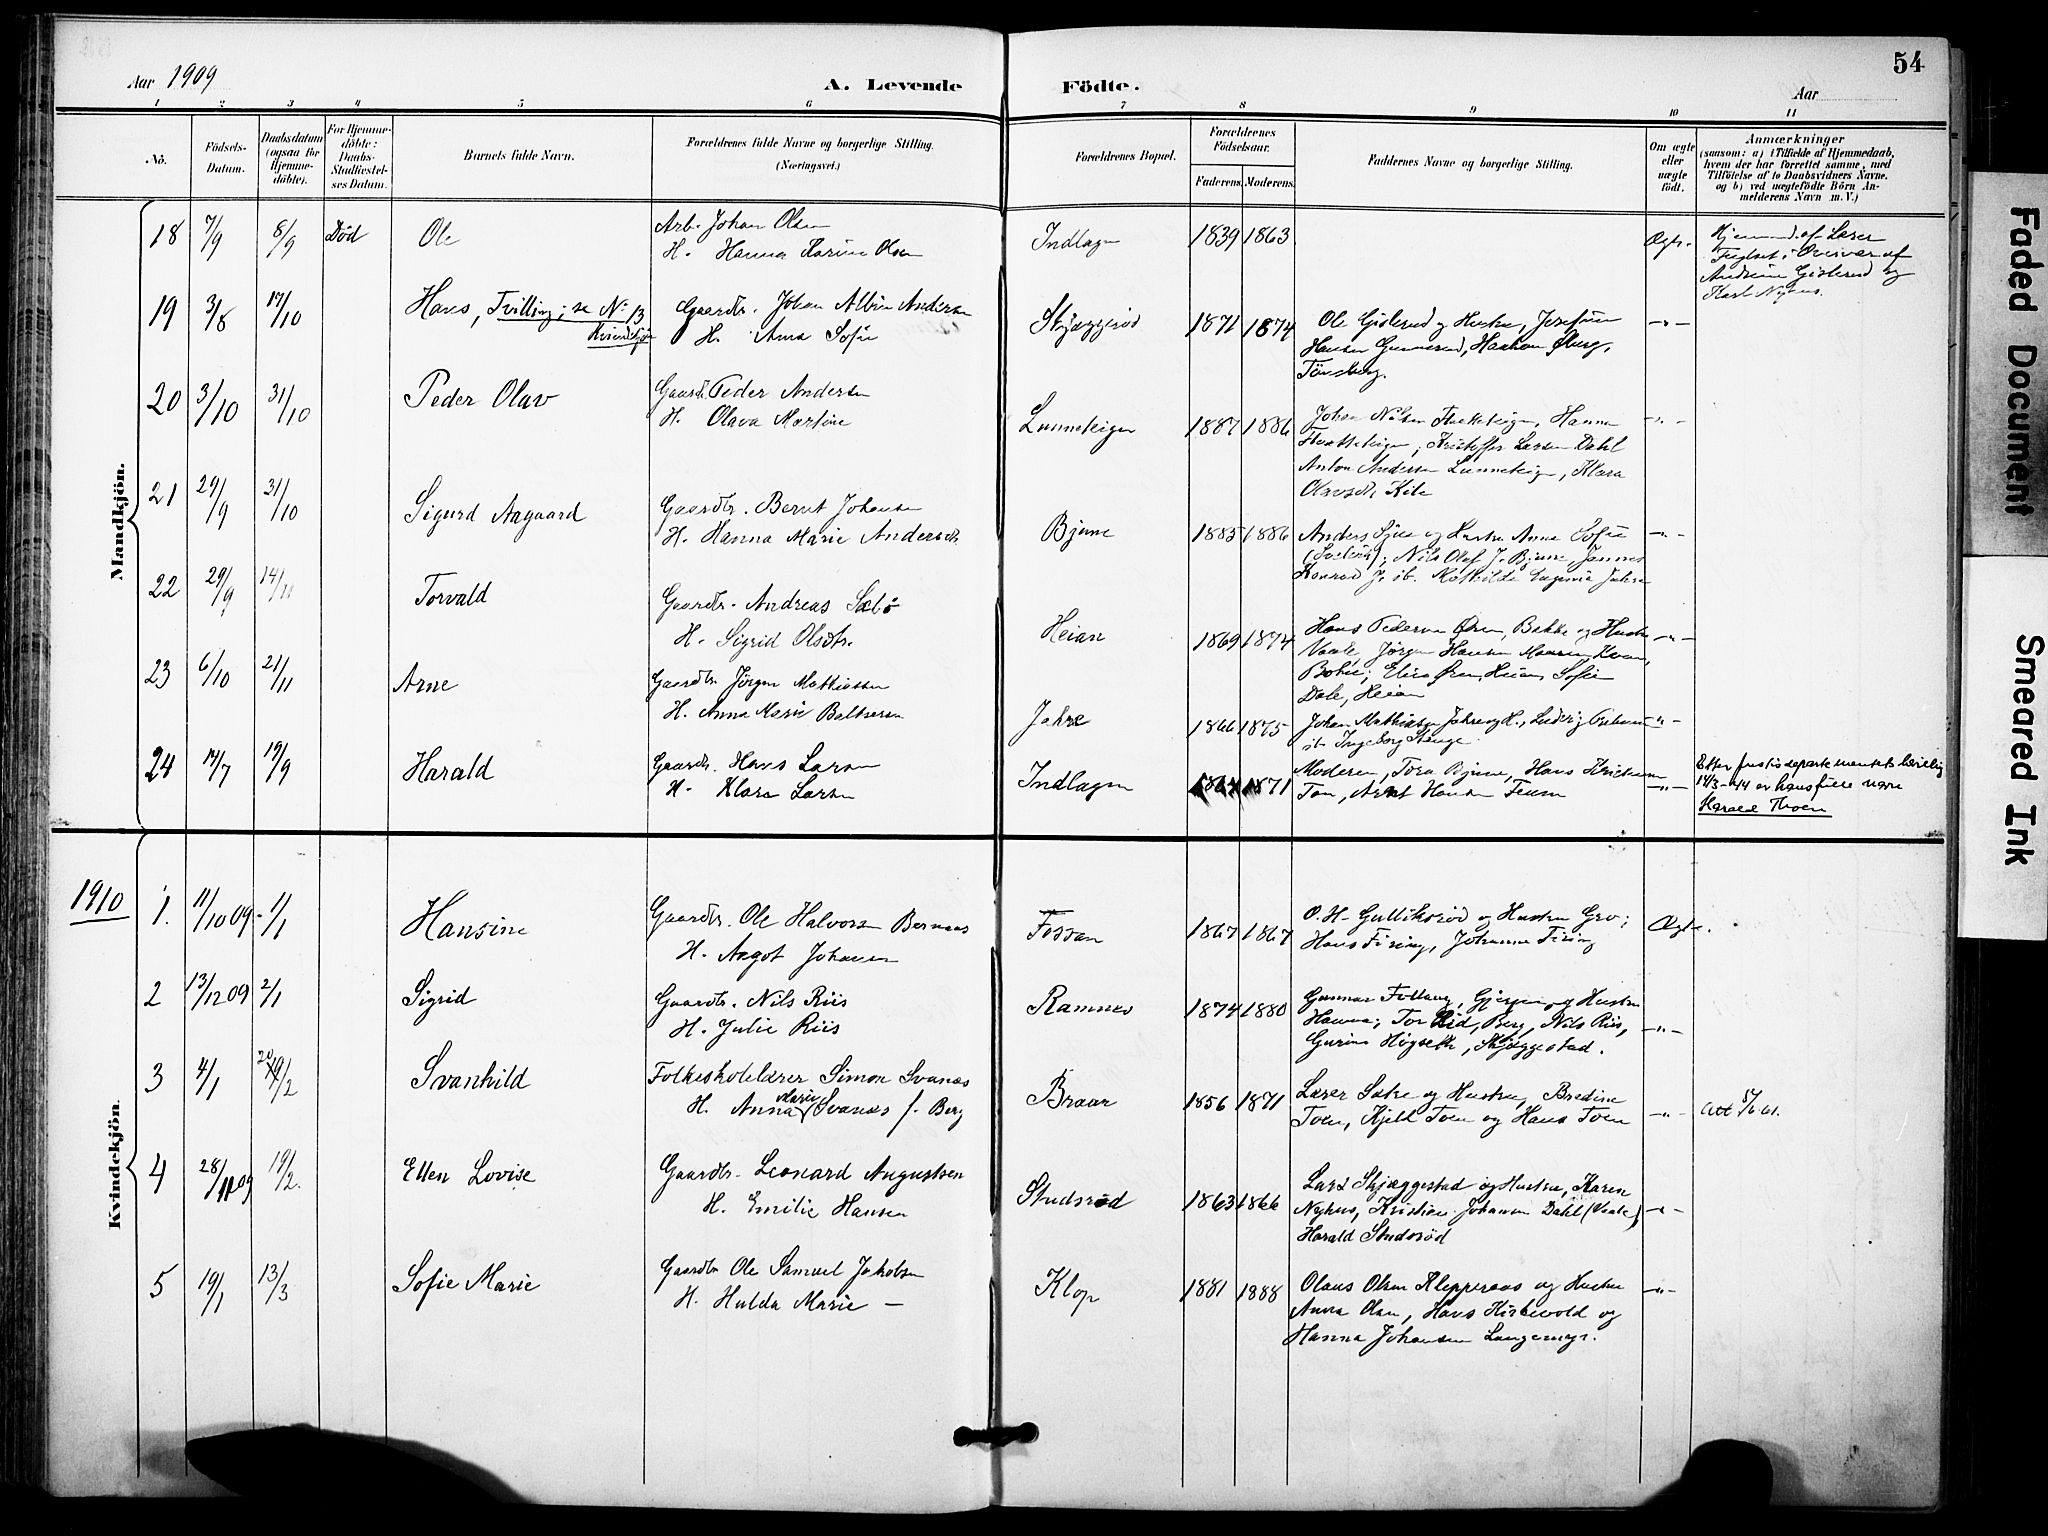 54
Aar 1909
A. Levende Födte.
Aar
1 2 3 4 5 6 7 8 9 10 11
No.
Födsels-Datum.
Daabsdatum (ogsaa for Hjemme-döbte).
For Hjemme-döbte: Daabs-Stadfæstel-ses Datum.
Barnets fulde Navn.
Forældrenes fulde Navne og borgerlige Stilling. (Næringsvei.)
Forældrenes Bopæl.
Forældrenes Födselsaar.
Faderens. Moderens.
Faddernes Navne og borgerlige Stilling.
Om ægte eller uægte födt.
Anmærkninger
(saasom: a) i Tilfælde af Hjemmedaab, hvem der har forrettet samme, med Tilföielse af to Daabsvidners Navne. og b) ved uægtefödte Börn An-melderens Navn m. V.)
Mandkjön.
18 7/9 8/9 Död Ole
Arb. Johan Olsen
H. Hanna Karine Olsen
Indlagn 1839 1863 Ægte.
19 3/8 17/10 Hans, Tvilling; se No. 13
Kvindekjön
Gaardbr. Johan Albin Andersen
H. Anna Sofie
Skjæggerød 1871 1874
Ole Gislerud og Hustru, Josefine
Hansen Gunnerød, Haakon Øberg,
Tönsberg.
20 3/10 31/10 Peder Olav
Gaardb. Peder Andersen
H. Olava Martine
Lunneteigen 1887 1886
Johan Nilsen, Hanna
Kristoffer Larsen Dahl
Anton Andersen Lunneteigen, Klara
Olavsdtr. Kile
21 29/9 31/10 Sigurd Aagaard
Gaardbr. Bernt Johansen
H. Hanna Marie Andersdtr.
Bjune 1885 1886
Anders og Hustru Anne Sofie
(Svelvik); Nils Olaf J. Bjune
Konrad J. ib. Mathilde Eugenie Jahre
22 29/9 14/11 Torvald
Gaardbr. Andreas Sæbö
H. Sigrid Olsdtr.
Heian 1869 1874
Hans Pedersen Øren, Bakke og Hustru
Vaale, Jörgen Hansen
Øren, Heian, Sofie
Dale, Heian
23 6/10 21/11 Arne
Gaardbr. Jörgen Mathiassen
H. Anna Marie Baltzersen
Jahre 1866 1875
Johan Mathiasen Jahre og H., Ludvig
ib. Ingeborg Stange
24 14/7 19/9 Harald
Gaardbr. Hans Larsen
H. Klara Larsen
Indlagn 1864 1871
Moderen, Tora Bjune, Hans Kristiansen
Toen, Hansen
Efter justisdepartementets bevilling
14/3-44 er hans fulle navn
Harald Thoen
Kvindekjön.
1910
1. 11/10 09 1/1 Hansine
Gaardbr. Ole Halvorsen Bernaas
H. Aagot Johansen
Fossan 1867 1867
O. H. Gulliksröd og Hustru Gro;
Hans Firing, Johanne Firing
Ægte.
2 13/12 09 2/1 Sigrid
Gaardbr. Nils Riis
H. Julie Riis
Ramnes 1874 1880
Gunnar Follaug, Gjerpen og Hustru
Hanna; Berg, Nils Riis,
Gurine Högseth, Skjæggestad.
3 4/1 20/2 Svanhild
Folkeskolelærer Simon Svanæs
H. Anna Marie Svanæs f. Berg
Braar 1856 1871
Lærer Sætre og Hustru, Bredine
Toen, Kjeld Toen og Hans Toen
Att 5/6 61.
4 28/11 09 19/2. Ellen Lovise
Gaardbr. Leonard Augustsen
H. Emilie Hansen
Studsröd 1863 1866
Lars Skjæggestad og Hustru, Karen
Nyhus, Kristian Johansen Dahl (Vaale),
Harald Studsröd
5 19/1 13/3 Sofie Marie
Gaardbr Ole Samuel Jakobsen
H. Hulda Marie —
Klop 1881 1888
Olaus Olsen Klepperaas og Hustru
Anna Olsen, Hans Kirkevold og
Hanna Johansen Langemyr.
Faded Document
Smeared Ink